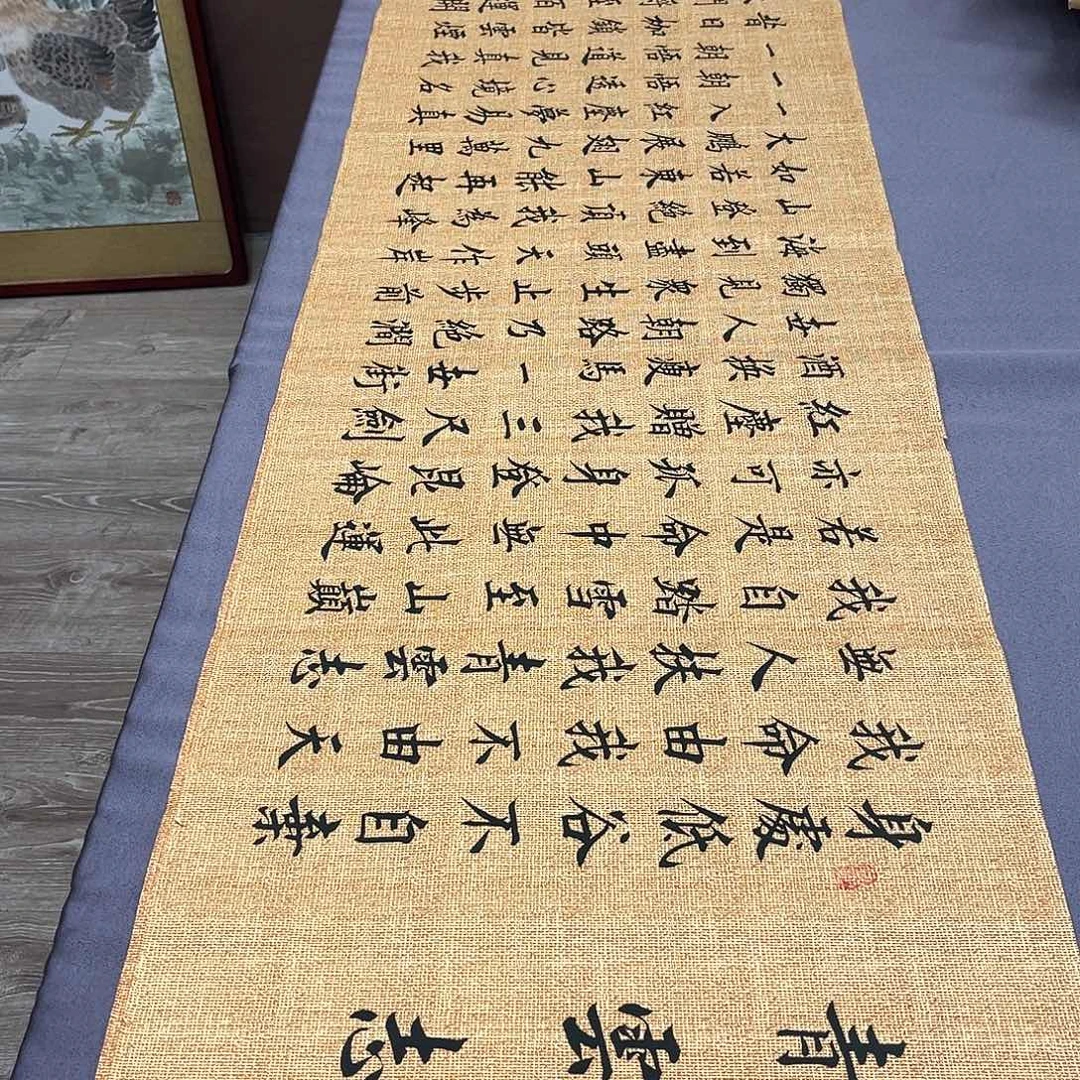 青雲志
身處低谷不自棄
我命由我不由天
無人扶我青雲志
我自踏雪至山巔
若是命中無此運
亦可孤身登昆崘
紅塵贈我三尺劍
酒換瘦馬一世街
世人朝路乃絕澗
獨見衆生止步前
海到盡頭天作岸
山登絕頂我為峰
如若東山能再起
大鵬展翅九萬里
一入紅塵夢易真
一朝悟透心境名
一朝悟道見真我
昔日枷鎖皆雲煙